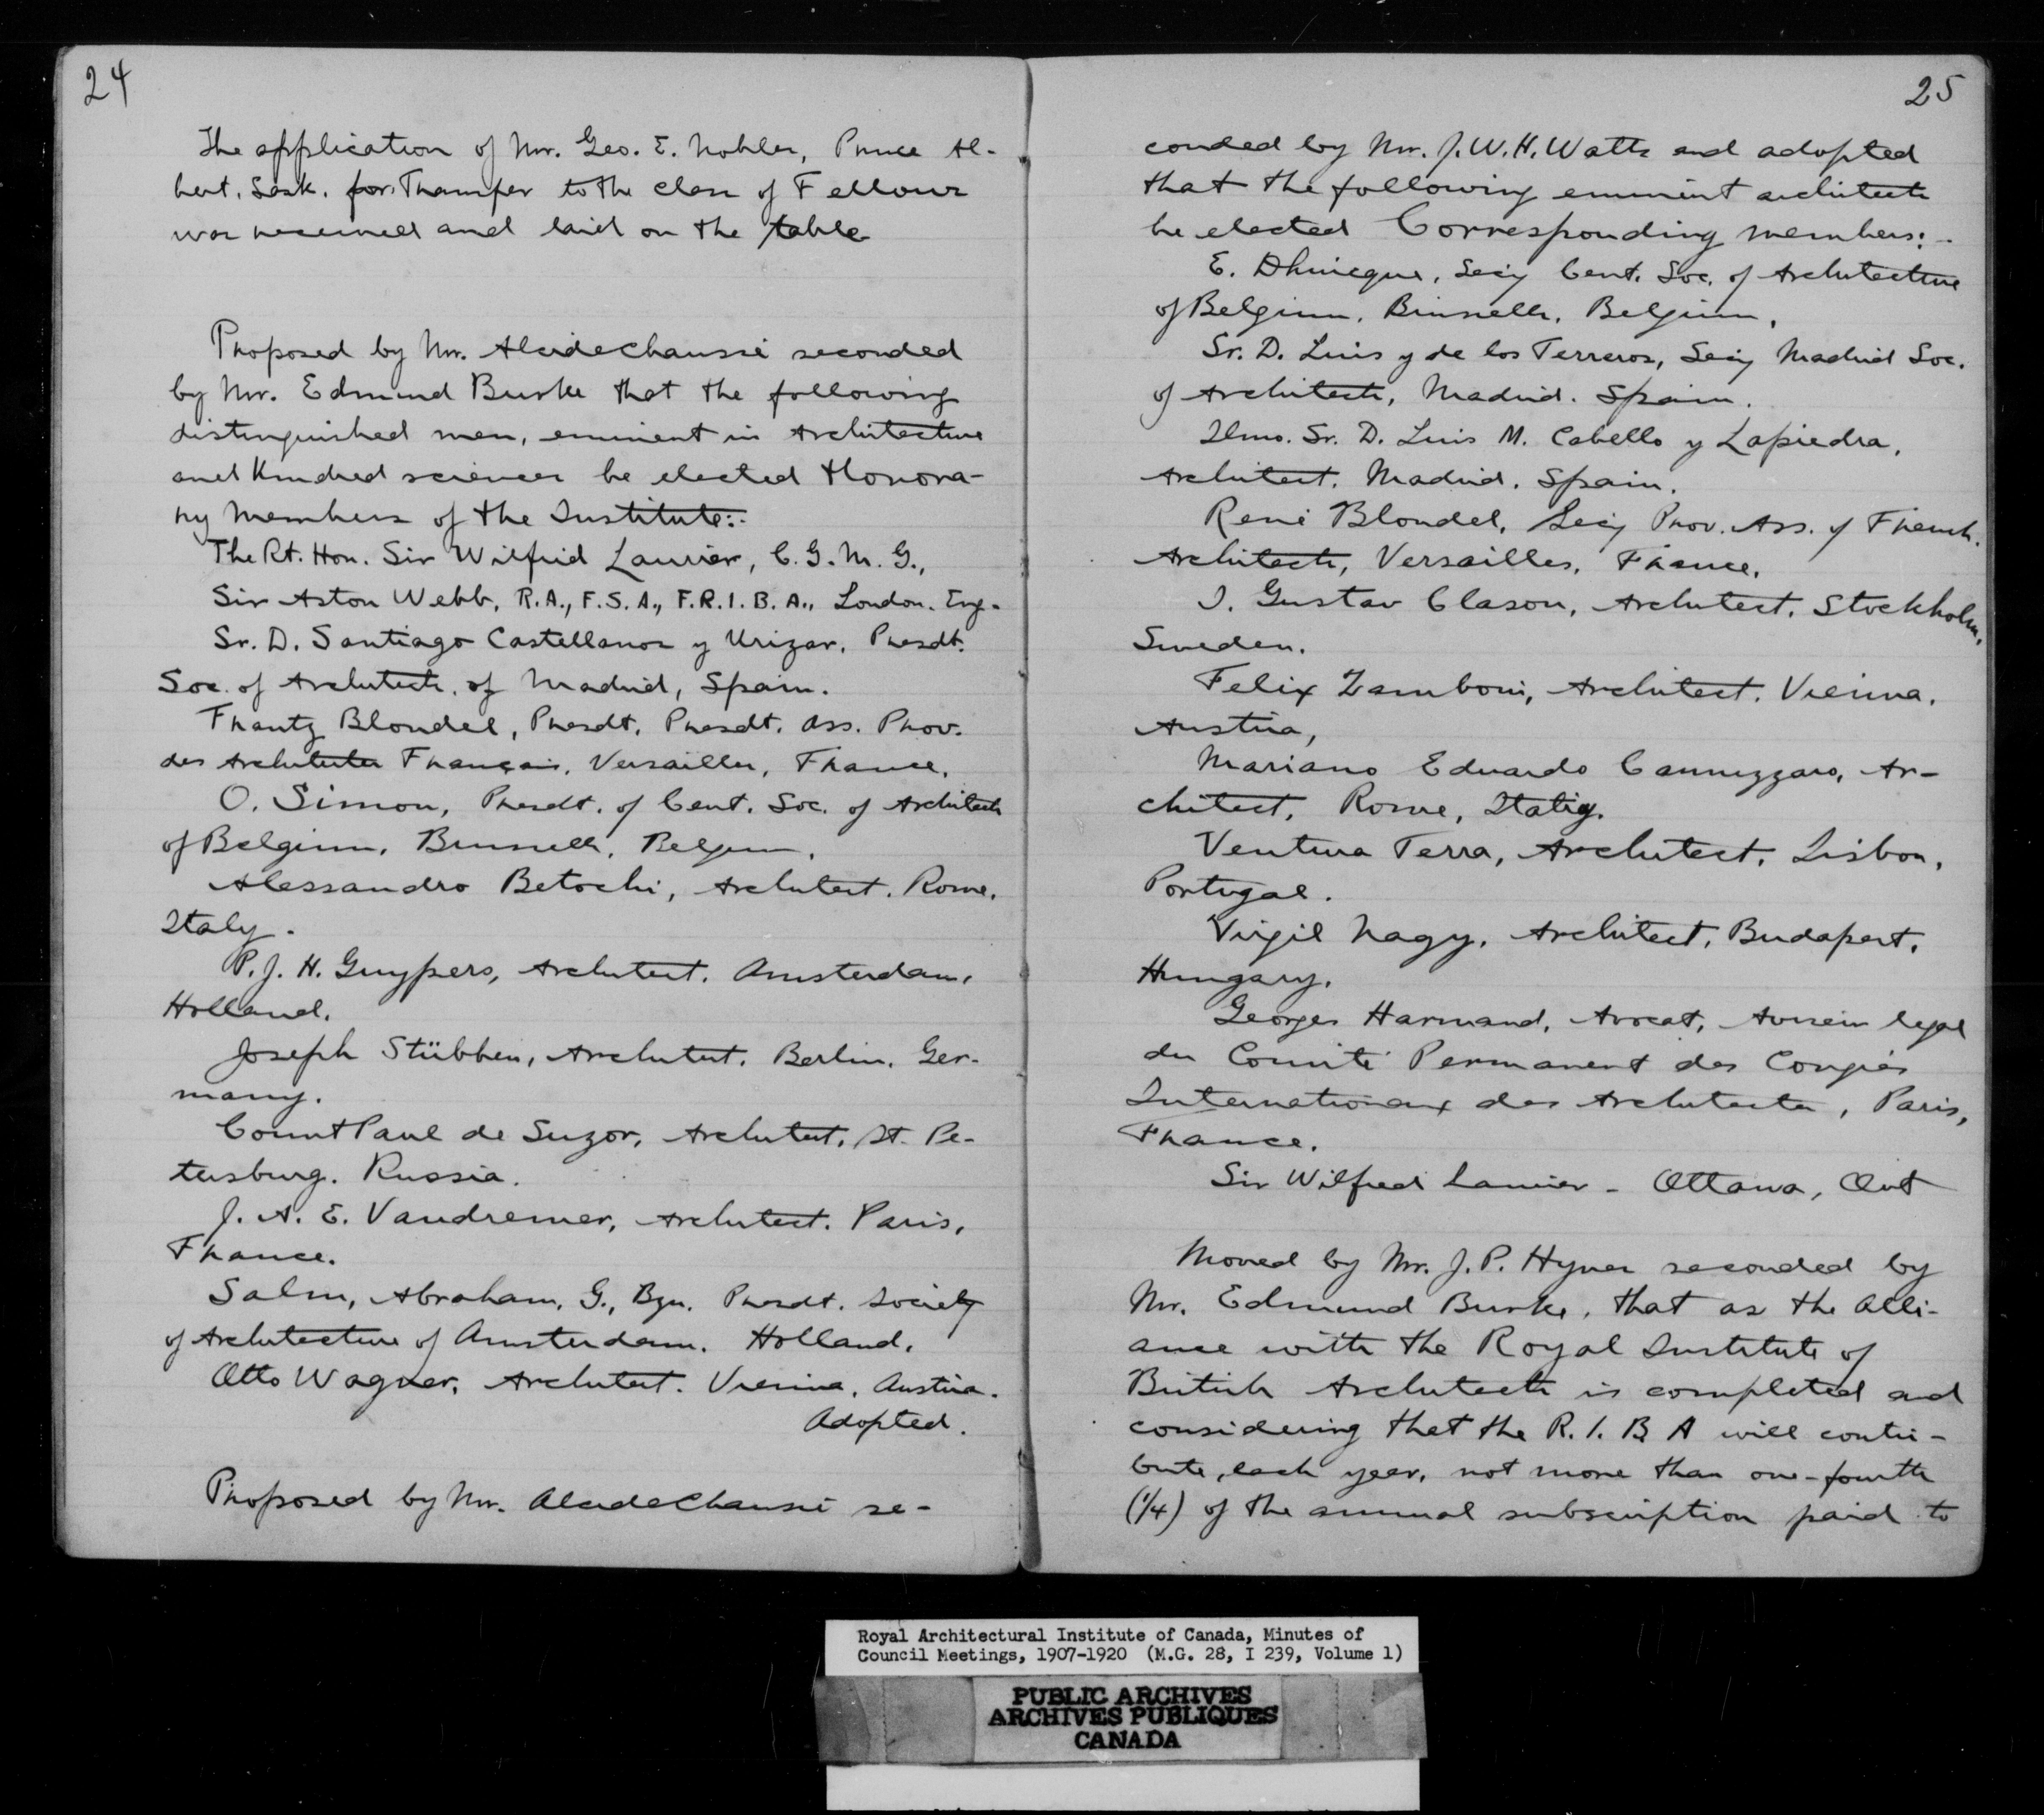 24
The application of Mr. Geo. E. Nohler, Prince Al-
bert, Sask. for Transfer to the class of Fellows
was received and laid on the table
Proposed by Mr. Alcide Chaussé seconded
by Mr. Edmund Burke that the following
distinguished men, eminent in Architecture
and Kindred sciences be elected Honora-
ry Members of the Institute:-
The Rt. Hon. Sir Wilfrid Laurier, C. G. M. G.,
Sir Aston Webb, R.A., F.S.A., F.R.I.B.A., London. Eng.
Sr. D. Santiago Castellanos y Urizar, Presdt.
Soc. of Architects, of Madrid, Spain.
Frantz Blondel, Presdt, Presdt. Ass. Prov.
des Architectes Français, Versailles, France.
O. Simon, Presdt. of Cent. Soc. of Architects
of Belgium, Brussells, Belgium,
Alessandro Betochi, Architect. Rome,
Italy.
P. J. H. Guypers, Architect. Amsterdam,
Holland.
Joseph Stübben, Architect. Berlin. Ger-
many.
Count Paul de Suzor, Architect, St. Pe-
tersburg. Russia.
J. A. E. Vaudremer, Architect. Paris,
France.
Salm, Abraham, G., Bzn. Presdt. Society
of Architecture of Amsterdam. Holland.
Otto Wagner, Architect. Vienna, Austria.
Adopted.
Proposed by Mr. Alcide Chaussé se-
25
conded by Mr. J. W. H. Watts and adopted
that the following eminent architects
be elected Corresponding members:-
E. Dhuicque, Secy Cent. Soc. of Architecture
of Belgium, Brussells, Belgium,
Sr. D. Luis y de los Terreros, Secy Madrid Soc.
of Architects, Madrid. Spain.
Ilmo. Sr. D. Luis M. Cabello y Lapiedra,
Architect. Madrid. Spain.
René Blondel, Secy Prov. Ass. of French
Architects, Versailles, France.
I. Gustav Clason, Architect, Stockholm,
Sweden.
Felix Zamboni, Architect. Vienna,
Austria,
Mariano Eduardo Cannizzaro, Ar-
chitect, Rome, Italy.
Ventura Terra, Architect, Lisbon,
Portugal.
Virgil Nagy, Architect, Budapest,
Hungary.
Georges Harmand, Avocat, legal
du Comité Permanent des Congrès
Internationaux des Architectes, Paris,
France.
Sir Wilfred Laurier - Ottawa, Ont
Moved by Mr. J. P. Hynes seconded by
Mr. Edmund Burke, that as the alli-
ance with the Royal Institute of
British Architects is completed and
considering that the R. I. B. A will contri-
bute, each year, not more than one-fourth
(1/4) of the annual subscription paid to
Royal Architectural Institute of Canada, Minutes of
Council Meetings, 1907-1920 (M.G. 28, I 239, Volume 1)
PUBLIC ARCHIVES
ARCHIVES PUBLIQUES
CANADA